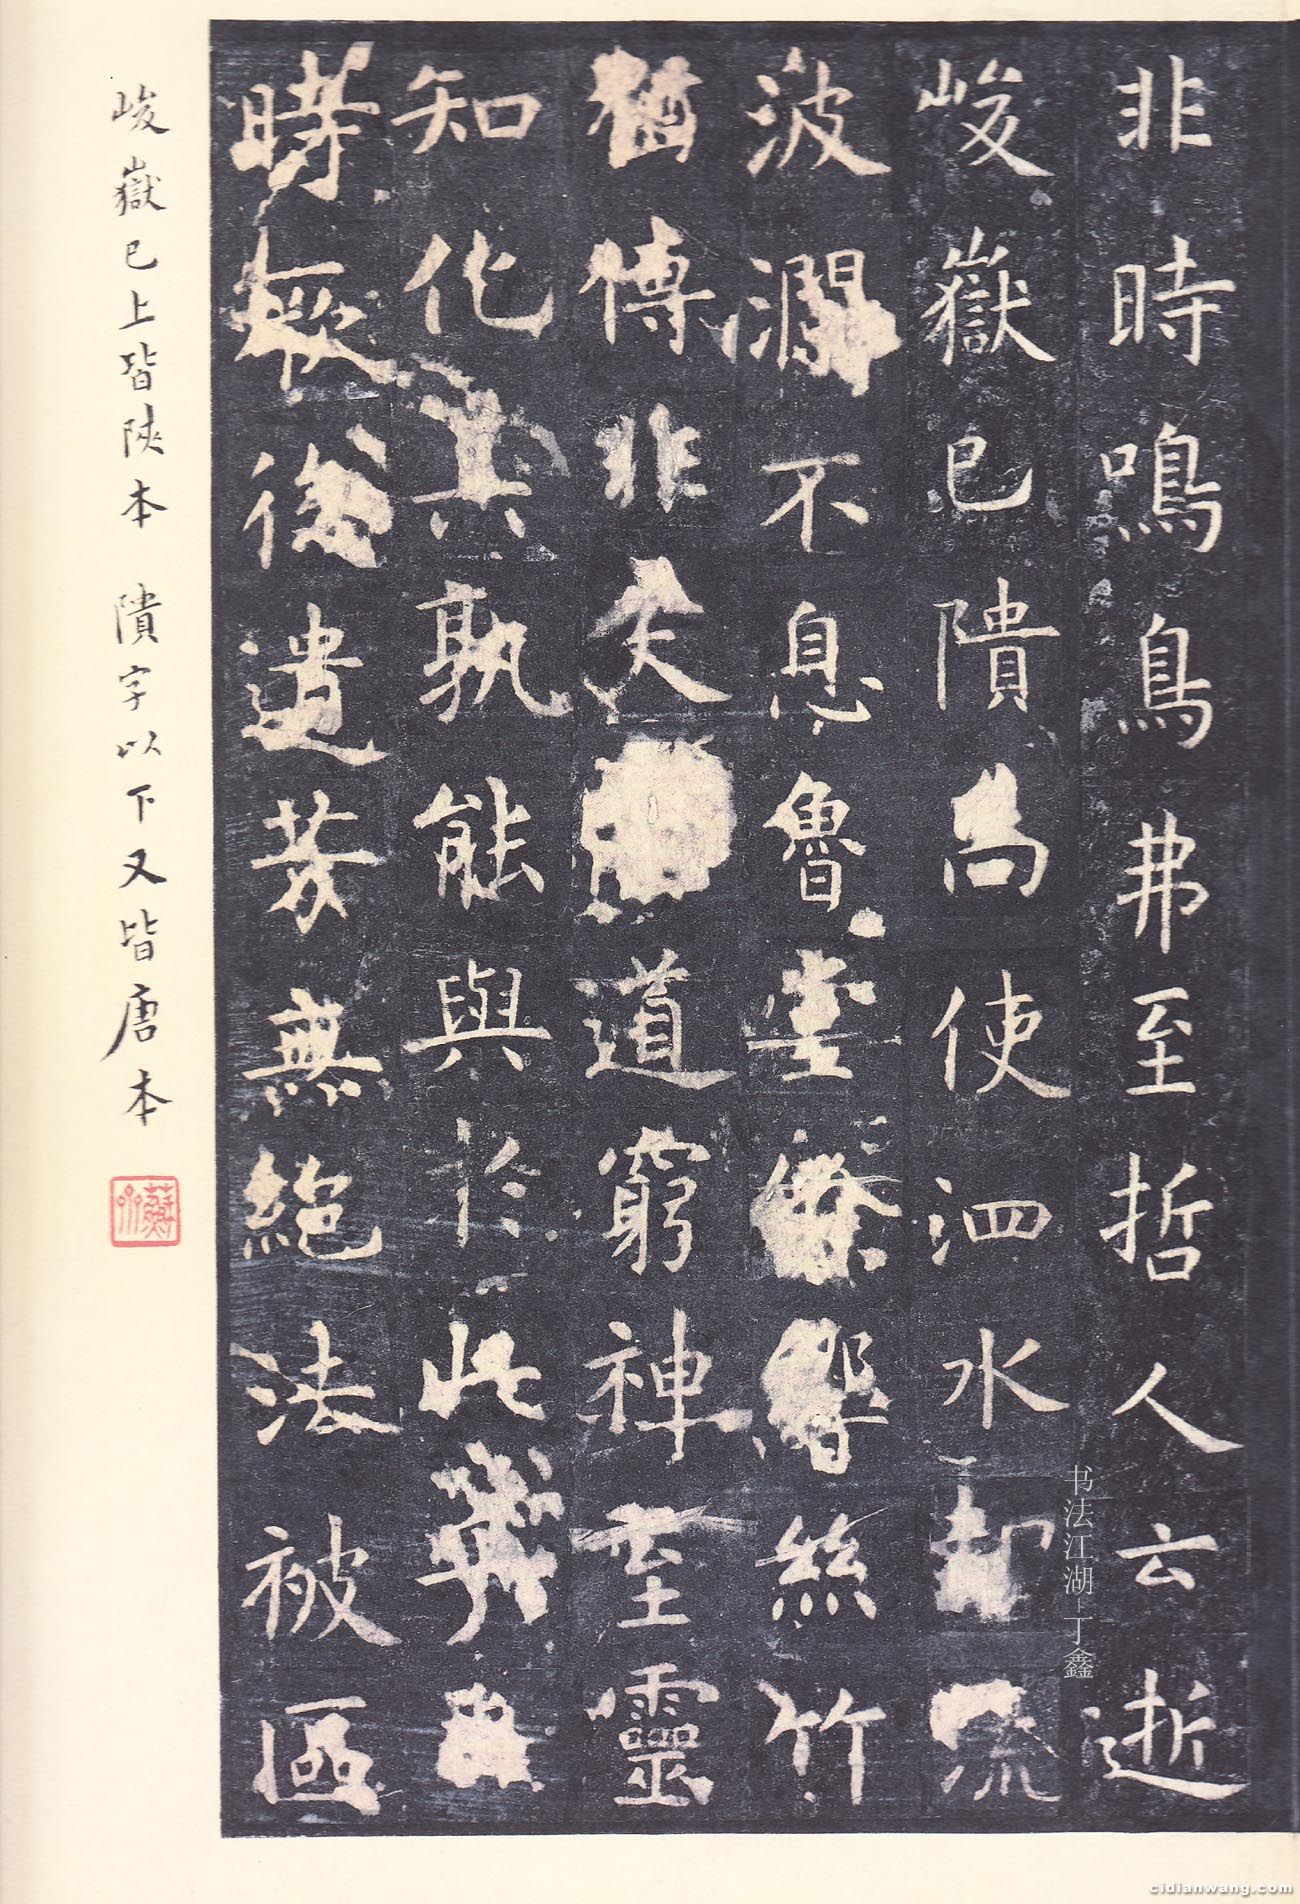 非時鳴鳥弗至哲人云逝
峻嶽已隤尚使泗水却流
波瀾不息魯堂餘響絲竹
猶傳非夫道窮神至靈
知化其孰能與於此乎自
時厥後遺芳無絕法被區
峻嶽已上皆陝本 隤字以下又皆唐本
书法江湖-丁鑫
cidianwang.com